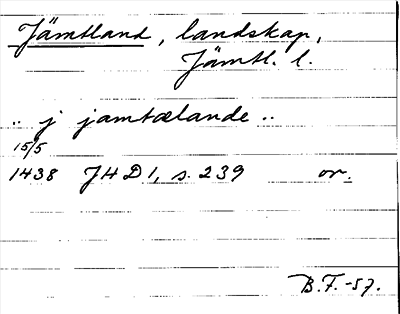 Jämtland, landskap,
Jämtl. l.
.. j jamtælande ..
15/5
1438 JHD 1, s. 239 or.
B.F.-57.